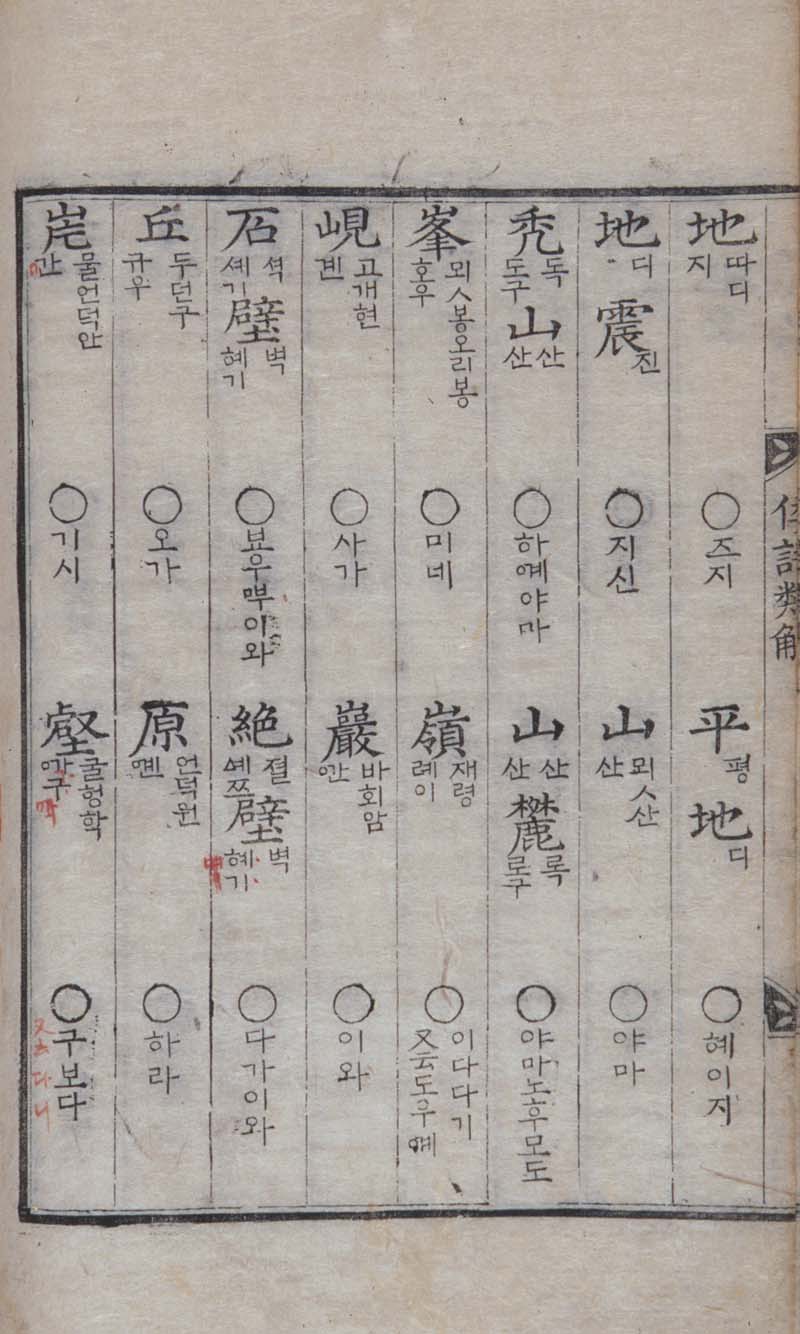 倭語類解
地 따디 지 ○ 즈지 平 평 地 디 ○ 혜이지
地 디 震 진 ○ 지신 山 뫼ㅅ산 산 ○ 야마
禿 독 도구 山 산 산 ○ 하예야마 山 산 산 麓 록 로구 ○ 야마노후모도
峯 뫼ㅅ봉오리봉 호우 ○ 미네 嶺 재령 례이 ○ 이다다기 又云도우
峴 고개현 겐 ○ 사가 巖 바회암 안 ○ 이와
石 셕 셰기 壁 벽 혜기 ○ 뵤우ᄲᅮ이와 絶 졀 壁 벽 혜기 ○ 다가이와
丘 두던구 규우 ○ 오가 原 언덕원 옌 ○ 하라
岸 물언덕안 안 ○ 기시 壑 굴헝학 ○ 구보다